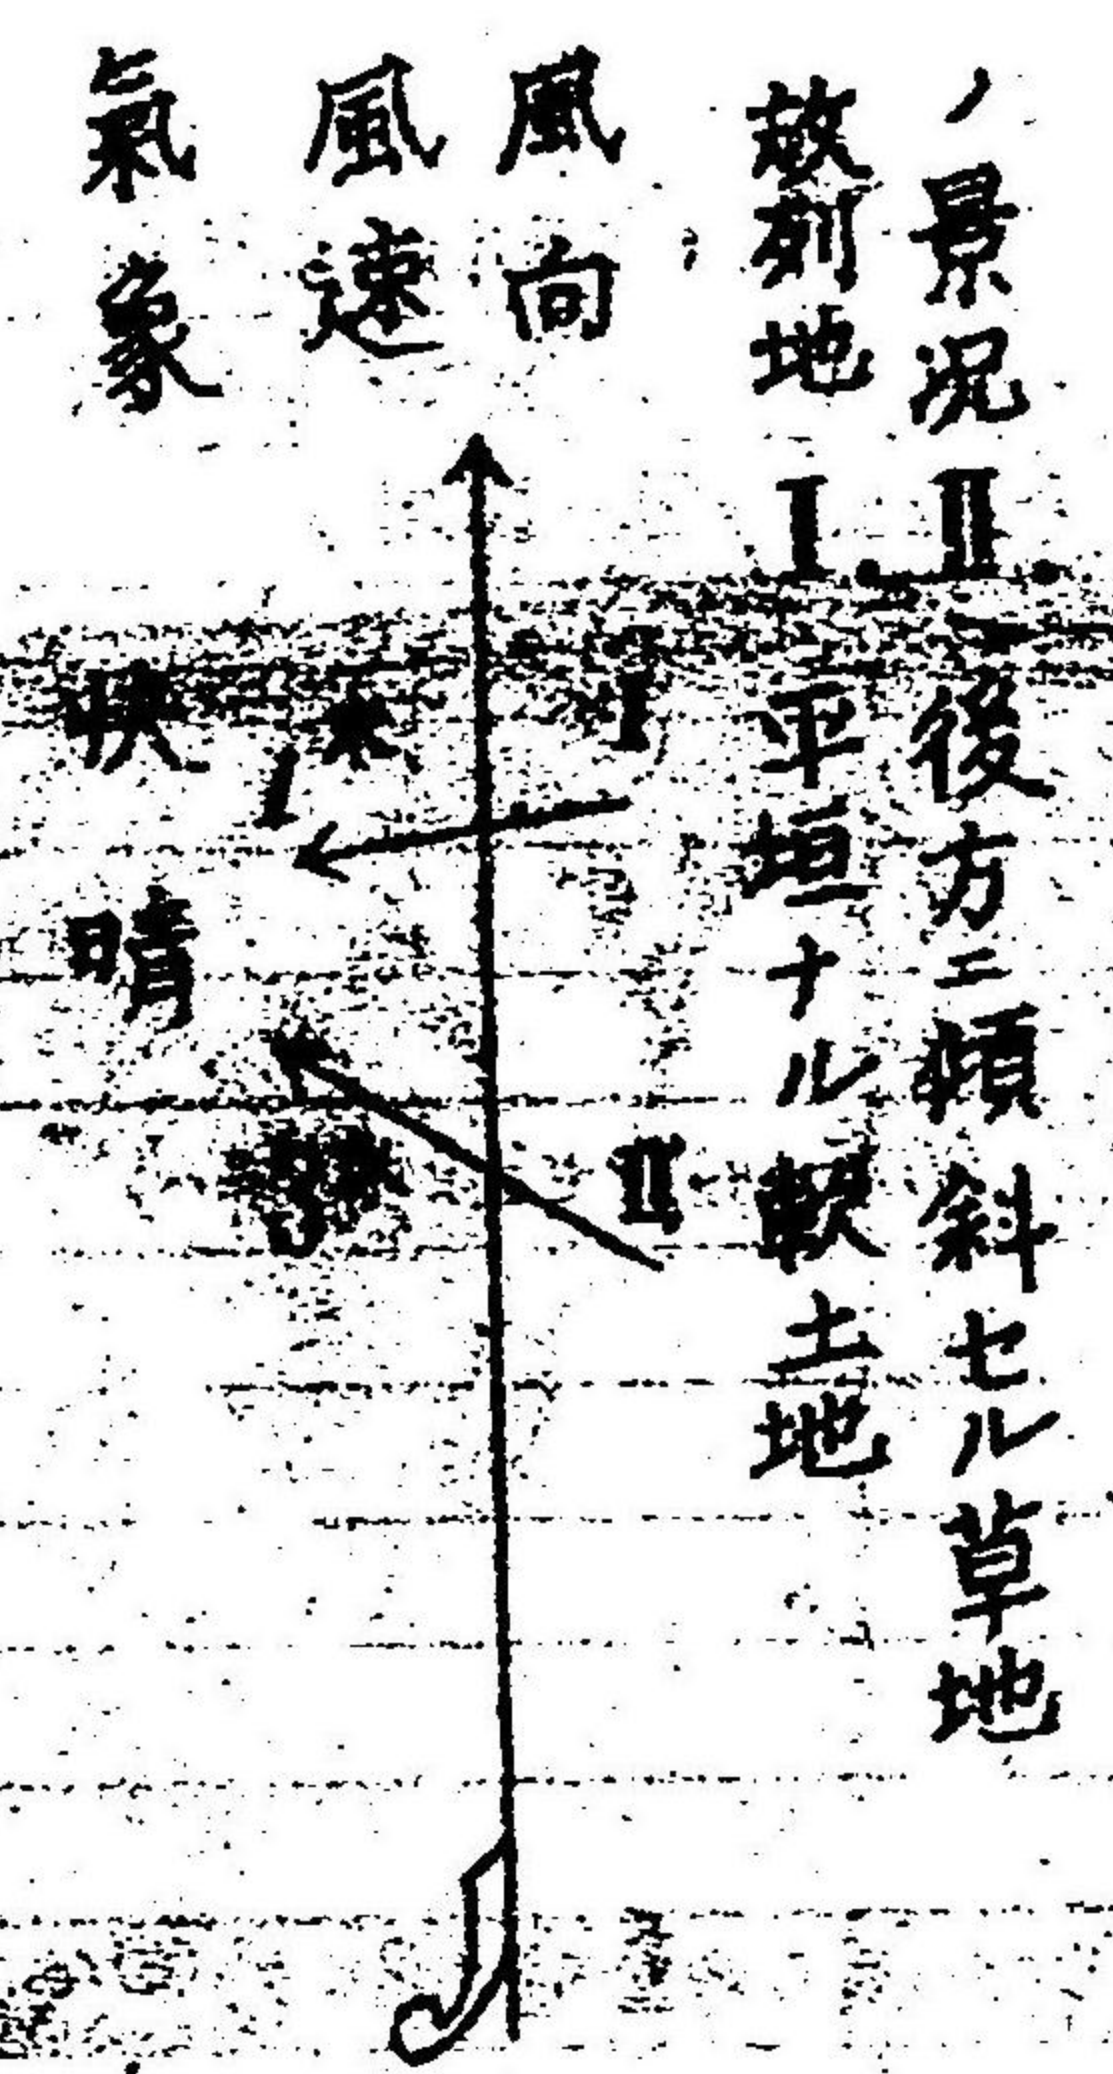 ノ景況 Ⅱ. 後方ニ傾斜セル草地
放列地 Ⅰ. 平垣ナル軟土地
風向 Ⅰ Ⅱ
風速 米
氣象 快晴